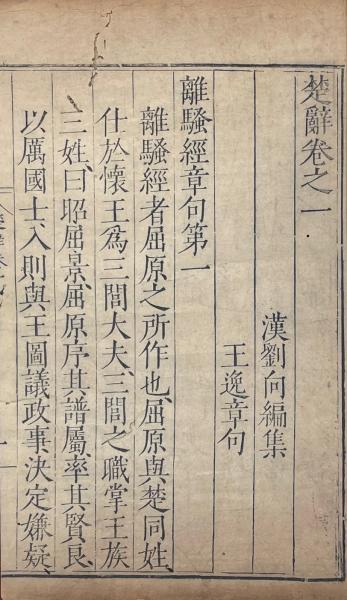 楚辭卷之一
漢劉向編集
王逸章句
離騷經章句第一
離騷經者屈原之所作也、屈原與楚同姓、
仕於懷王爲三閭大夫、三閭之職掌王族
三姓、曰昭屈景、屈原序其譜屬、率其賢良、
以厲國士、入則與王圖議政事、決定嫌疑、